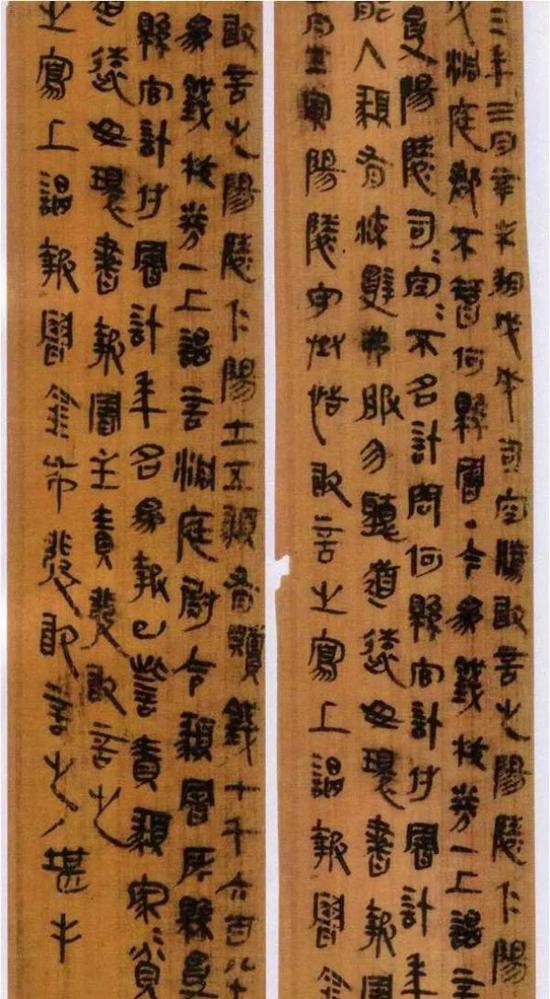 三年三月辛未朔戊戌司空騰敢言之陽陵仁陽
戍洞庭郡不智何縣署·今為錢校券一上謁言
受陽陵司=空=不名計問何縣官計付署計年
能入頯有流辤弗服勿聽道遠毋環書報署
月壬寅陽陵守丞恬敢言之寫上謁報署金
敢言之陽陵仁陽士五頯有贖錢七千六百八十
為錢校券一上謁言洞庭尉令頯署所縣
縣官計付署計年名為報已訾責頯家=貧
道遠毋環書報署主責發敢言之
之寫上謁報署金布發敢言之/堪手